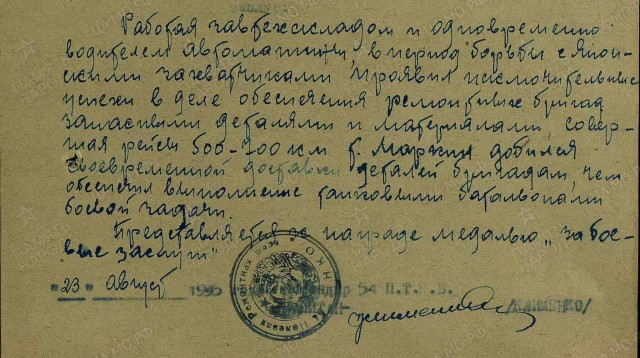 Работая завтехскладом и одновременно
водителем автомашины, в период борьбы с Япон-
скими захватчиками проявил исключительные
успехи в деле обеспечения ремонтных бригад
запасными деталями и материалами, совер-
шая рейсы 600-700 км т. Маркин добился
своевременной доставки деталей бригадам, чем
обеспечил выполнение танковыми батальонами
боевой задачи.
Представляется к награде медалью „за бое-
вые заслуги"
"23" август 1945 командир 54 П.Т. .В.
/КЛИМЕНКО/